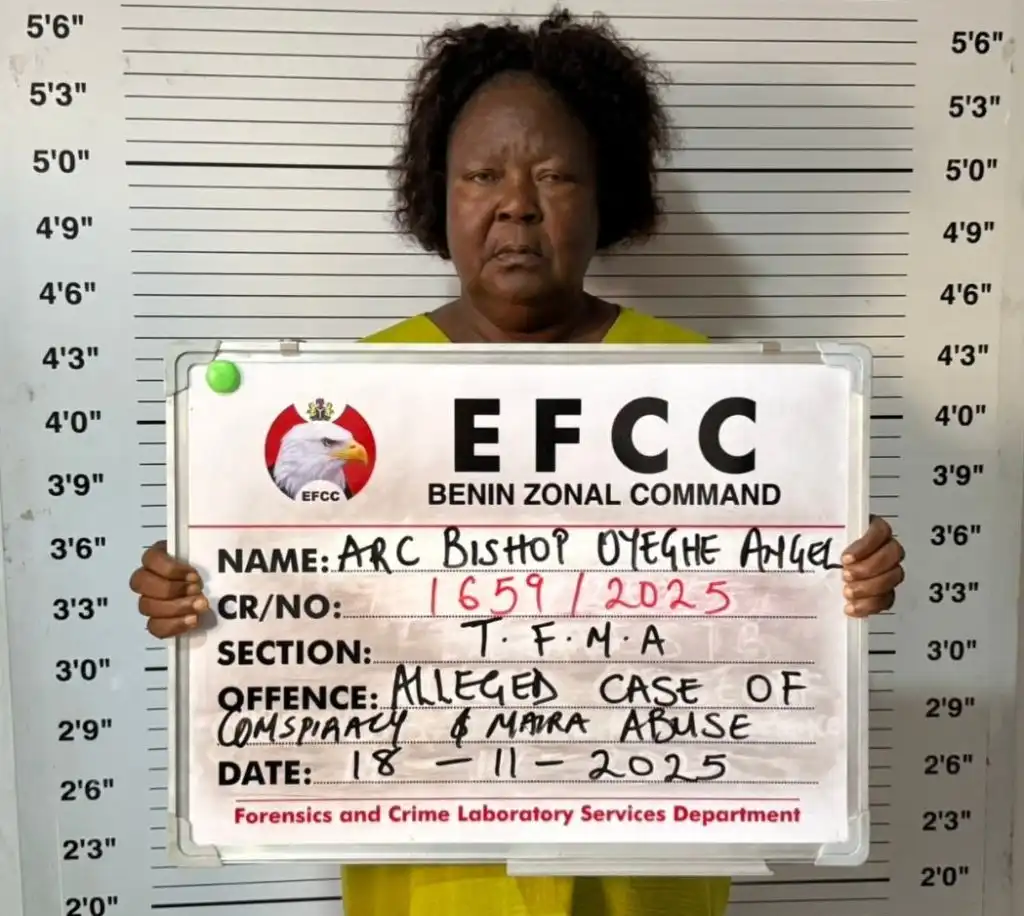 5'6" 5'6"
5'3" 5'3"
5'0" 5'0"
4'9" 4'9"
4'6" 4'6"
4'3" 4'3"
4'0" 4'0"
3'9" 3'9"
3'6" 3'6"
3'3" 3'3"
3'0" 3'0"
2'9" 2'9"
2'6" 2'6"
2'3" 2'3"
2'0" 2'0"
EFCC
EFCC
BENIN ZONAL COMMAND
NAME: ARC BISHOP OYEGHE ANGEL
CR/NO: 1659/2025
SECTION: T.F.M.A
OFFENCE: ALLEGED CASE OF
COMSPIRACY & NAIRA ABUSE
DATE: 18-11-2025
Forensics and Crime Laboratory Services Department